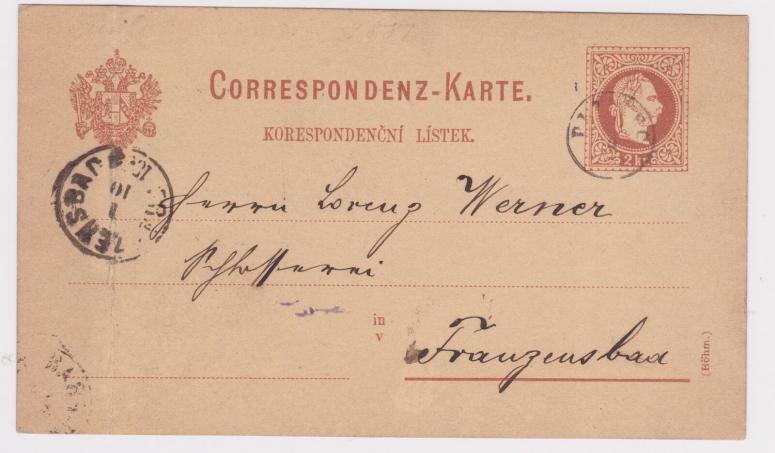 CORRESPONDENZ-KARTE.
KORESPONDENČNÍ LÍSTEK.
2 kr.
Herrn Lorenz Werner
Schlosserei
in
v
Franzensbad
(Böhm.)